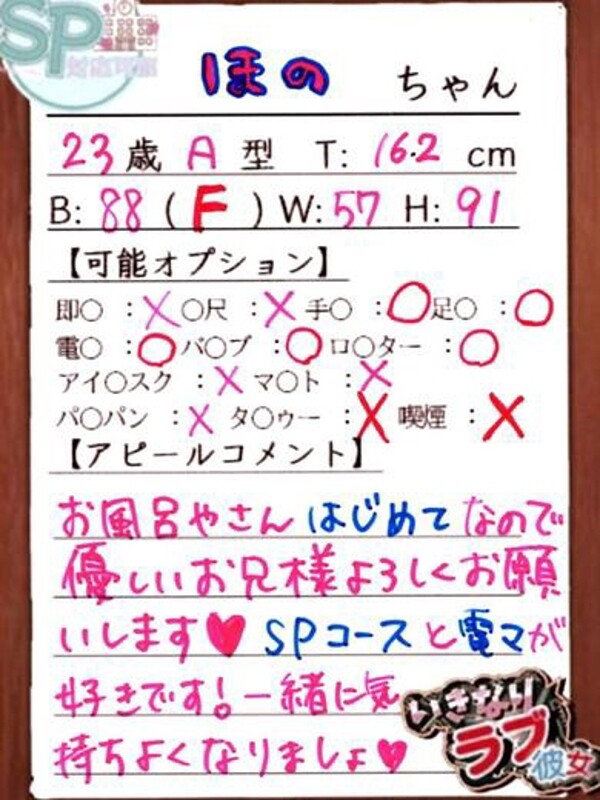 SP
対応可能
ほの ちゃん
23歳 A 型 T: 162 cm
B: 88 ( F ) W: 57 H: 91
【可能オプション】
即〇 : × 〇尺 : × 手〇 : 〇 足〇 : 〇
電〇 : 〇 バ〇ブ : 〇 ロ〇ター : 〇
アイ〇スク : × マ〇ト : ×
パ〇パン : × タ〇ゥー : × 喫煙 : ×
【アピールコメント】
お風呂やさん はじめて なので
優しいお兄様よろしくお願
いします♥ SPコースと電マが
好きです!一緒に気
持ちよくなりましょ♥
いきなり
ラブ彼女